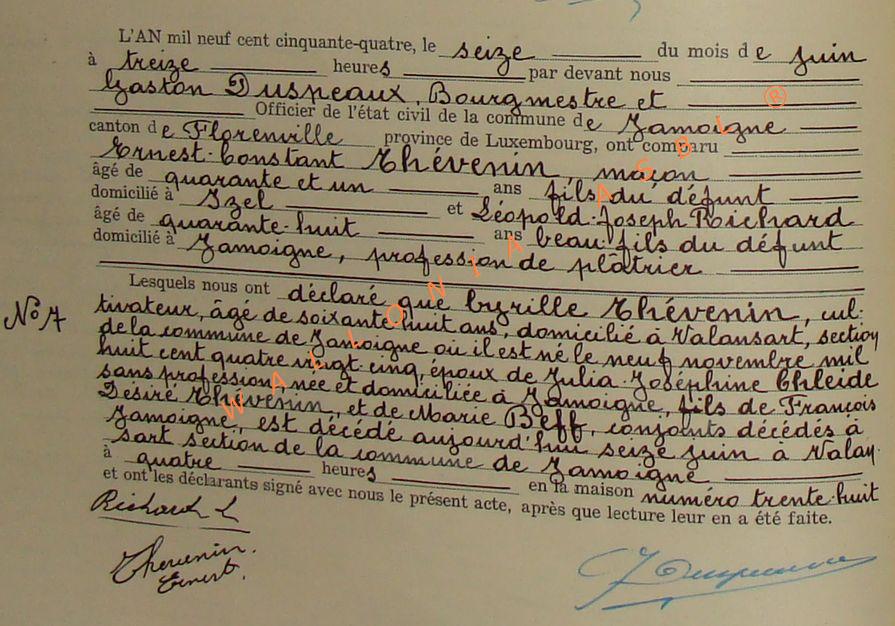 L'AN mil neuf cent cinquante-quatre, le seize du mois de juin
à treize heures par devant nous
Gaston Duspeaux, Bourgmestre et
Officier de l'état civil de la commune de Jamoigne
canton de Florenville province de Luxembourg, ont comparu
Ernest-Constant Thévenin, maçon
âgé de quarante et un ans fils du défunt
domicilié à Izel et Léopold-Joseph Richard
âgé de quarante-huit ans beau-fils du défunt
domicilié à Jamoigne, profession de plâtrier
Lesquels nous ont déclaré que Cyrille Thévenin, cul-
No 7 tivateur, âgé de soixante-huit ans, domicilié à Valansart, section
de la commune de Jamoigne où il est né le neuf novembre mil
huit cent quatre vingt-cinq, époux de Julia-Joséphine Chleide
sans profession, née et domiciliée à Jamoigne, fils de François
Désiré Thévenin, et de Marie Beff, conjoints décédés à
Jamoigne, est décédé aujourd'hui seize juin à Valan-
sart section de la commune de Jamoigne
à quatre heures en la maison numéro trente-huit
et ont les déclarants signé avec nous le présent acte, après que lecture leur en a été faite.
Richard L
Thevenin
Ernest.
WALLONIA ASBL ®